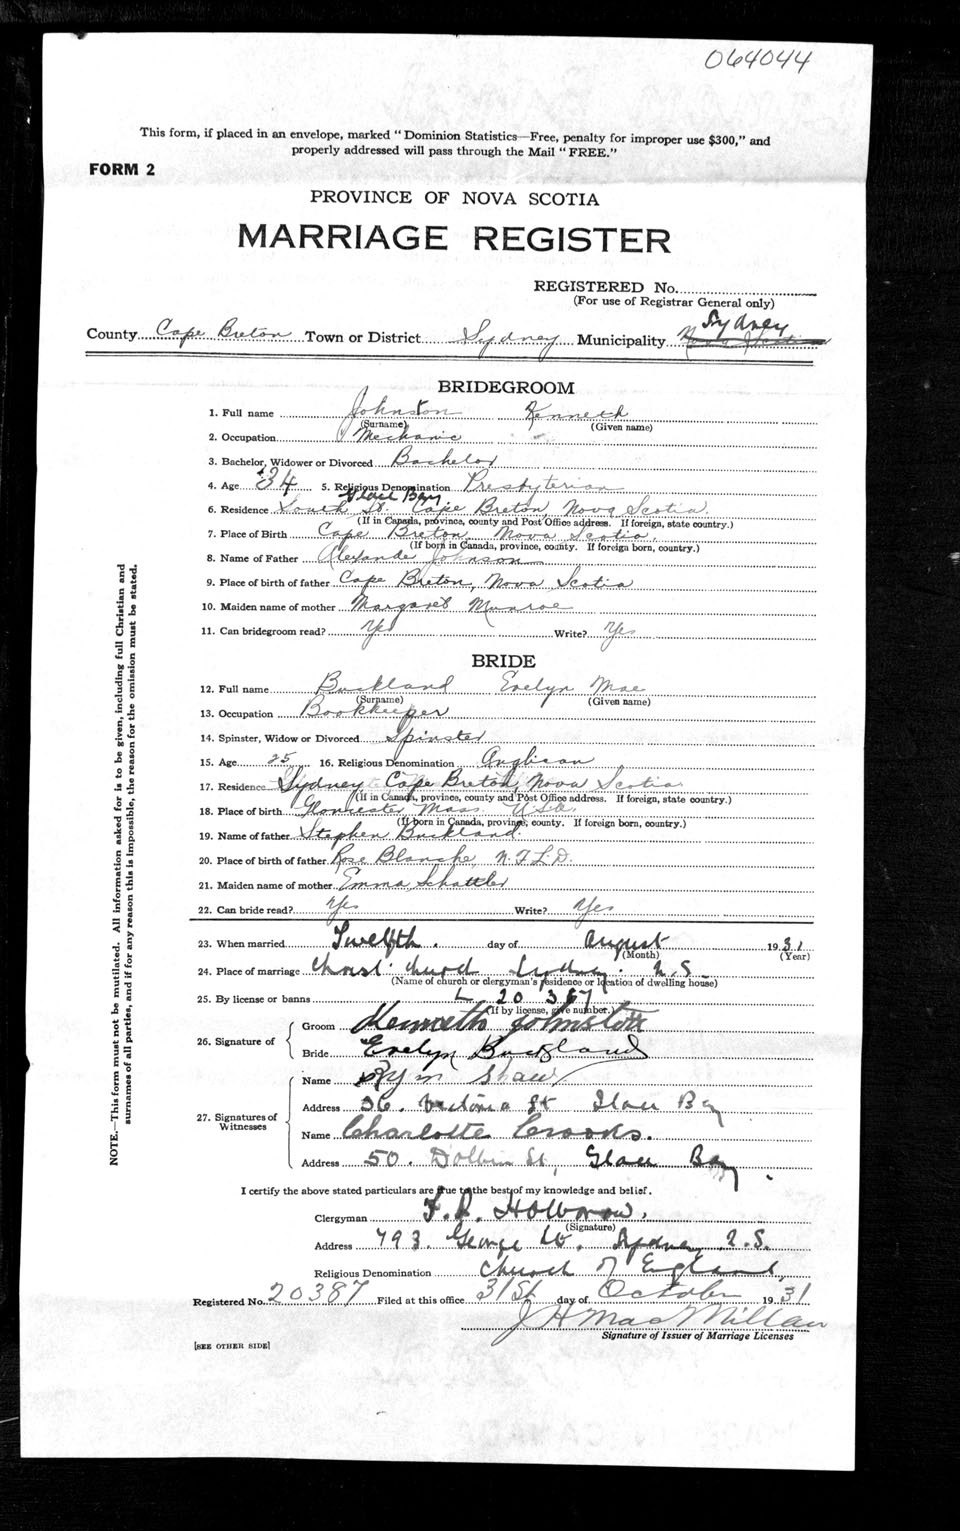 064044
This form, if placed in an envelope, marked "Dominion Statistics—Free, penalty for improper use $300," and
properly addressed will pass through the Mail "FREE."
FORM 2
PROVINCE OF NOVA SCOTIA
MARRIAGE REGISTER
REGISTERED No.
(For use of Registrar General only)
Sydney
County Cape Breton Town or District Sydney Municipality Nova Scotia
BRIDEGROOM
1. Full name Johnston Kenneth
(Surname) (Given name)
2. Occupation Mechanic
3. Bachelor, Widower or Divorced Bachelor
4. Age 34 5. Religious Denomination Presbyterian
Glace Bay
6. Residence South St. Cape Breton Nova Scotia
(If in Canada, province, county and Post Office address. If foreign, state country.)
7. Place of Birth Cape Breton, Nova Scotia.
(If born in Canada, province, county. If foreign born, country.)
8. Name of Father Alexande Johnson
9. Place of birth of father Cape Breton, Nova Scotia
10. Maiden name of mother Margaret Munroe
11. Can bridegroom read? Yes Write? Yes
BRIDE
12. Full name Buckland Evelyn Mae
(Surname) (Given name)
13. Occupation Bookkeeper
14. Spinster, Widow or Divorced Spinster
15. Age 25 16. Religious Denomination Anglican
17. Residence Sydney Cape Breton, Nova Scotia
(If in Canada, province, county and Post Office address. If foreign, state country.)
18. Place of birth Gloucester Mass. U.S.A.
(If born in Canada, province, county. If foreign born, country.)
19. Name of father Stephen Buckland.
20. Place of birth of father Rose Blanche, N.F.L.D.
21. Maiden name of mother Emma Schattler
22. Can bride read? Yes Write? Yes
23. When married Twelfth. day of August 1931
(Month) (Year)
24. Place of marriage Christ Church Sydney. N.S.
(Name of church or clergyman's residence or location of dwelling house)
25. By license or banns L 20 387
(If by license, give number.)
26. Signature of
Groom Kenneth Johnston
Bride Evelyn Buckland
27. Signatures of
Witnesses
Name Shaw
Address 36. Victoria St Glace Bay
Name Charlotte Crooks.
Address 50. Dolbin St, Glace Bay.
I certify the above stated particulars are true to the best of my knowledge and belief.
Clergyman
(Signature)
Address 793. George St. Sydney N.S.
Religious Denomination Church of England,
Registered No. 20387 Filed at this office 31st day of October 1931
J H MacMillan
Signature of Issuer of Marriage Licenses
[SEE OTHER SIDE]
NOTE.—This form must not be mutilated. All information asked for is to be given, including full Christian and
surnames of all parties, and if for any reason this is impossible, the reason for the omission must be stated.